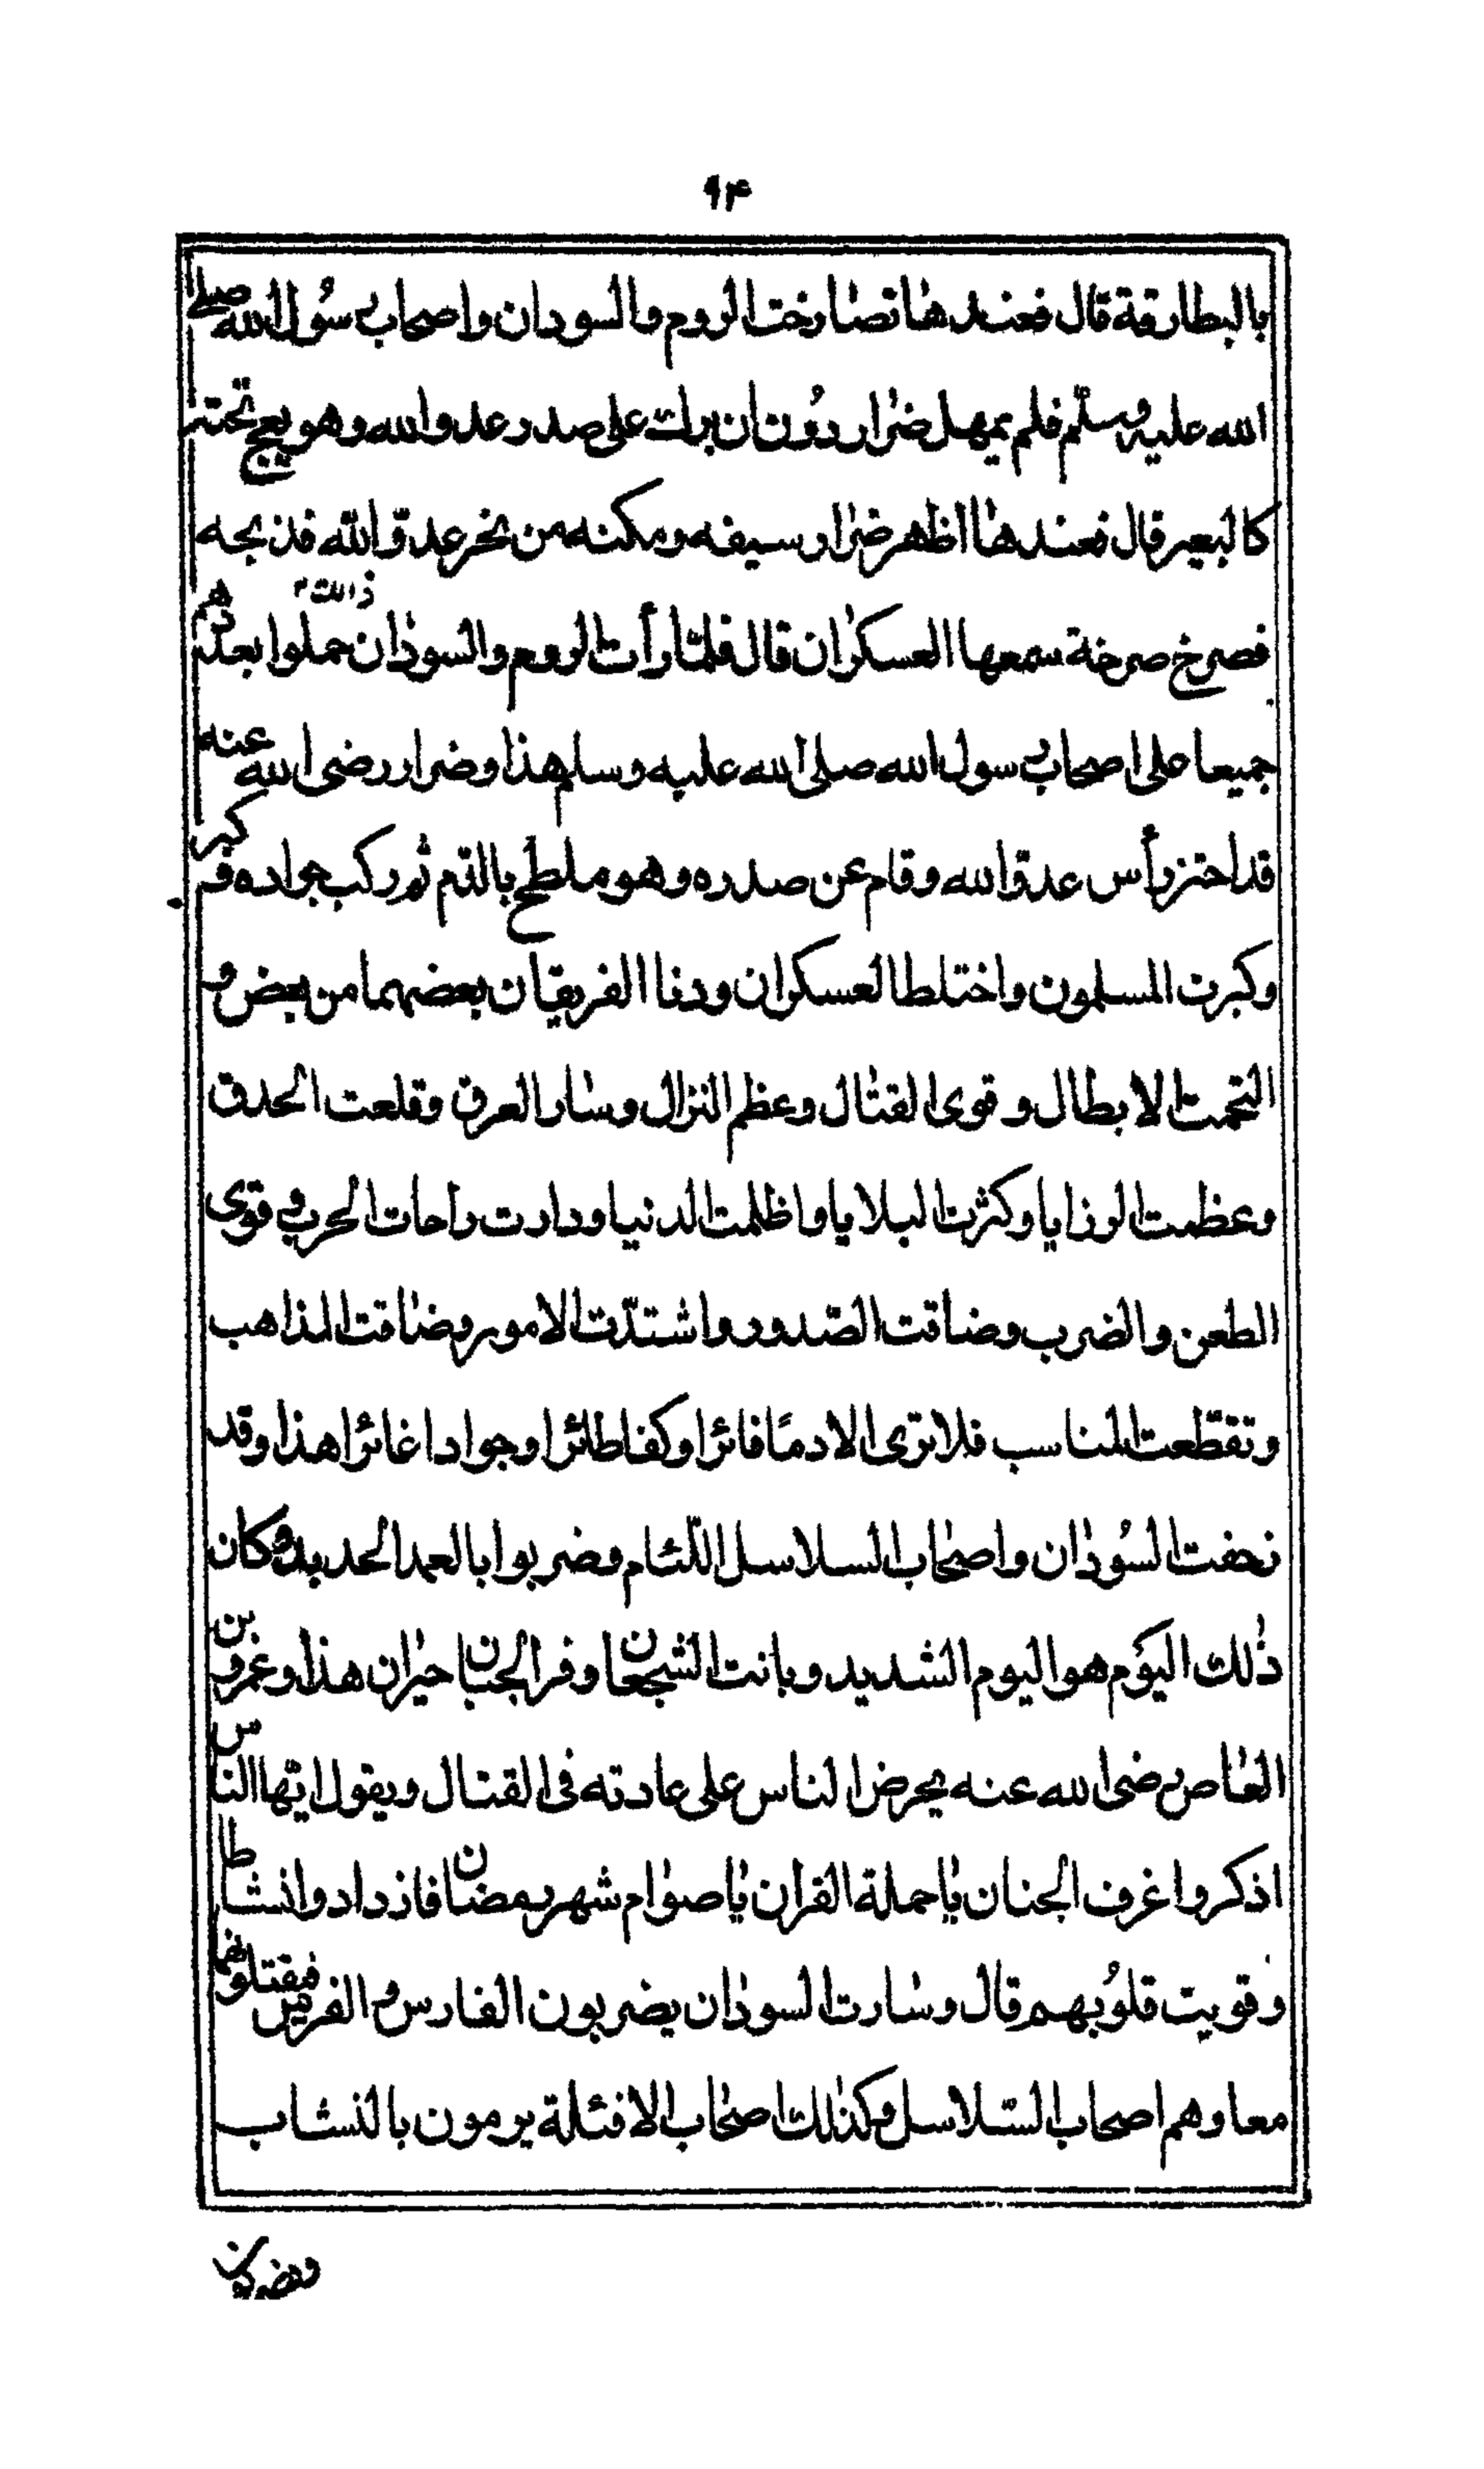 ۹۴
بالبطارقة قال فعندها تصارخت الروم والسودان واصحاب رسول الله صلے
الله عليه وسلم فلم يمهل ضرار دون ان برك على صدر عدو الله وهو يعج تحته
كالبعير قال فعندها اظهر ضرار سيفه ومكنه من نحر عدوّ الله فذبحه
فصرخ صرخة سمعها العسكران قال فلمّا رأت الروم والسودان ذالك حملوا بعدهم
جميعا على اصحاب رسول الله صلى الله عليه وسلم هذا وضرار رضى الله عنه
قد احتز رأس عدوّ الله وقام عن صدره وهو ملطخ بالدّم ثم ركب جواده وكبر
وكبرت المسلمون واختلطا لعسكران ودنا الفريقان بعضهما من بعض و
التحمت الابطال وقوى القتال وعظم النزال وسار العرق وقلعت الحدق
وعظمت الرزايا وكثرت البلايا واظلمت الدنيا ودارت راحات الحرب وقوى
الطعن والضرب وضاقت الصّدور واشتدّت الامور وضاقت المذاهب
وتقطّعت المناسب فلا ترى الا دمًا فائرا وكفا طائرا وجوادا غائرا هذا وقد
زحفت السُودان واصحاب السلاسل اللّئام وضربوا بالعمد الحديد وكان
ذٰلك اليوم هو اليوم الشديد وبانت الشجعان وفر الجنبان حيران هذا وعمرو بن
العاص رضى الله عنه يحرض الناس على عادته فى القتال ويقول ايّها الناس
اذكروا غرف الجنان يا حملة القران يا صوام شهر رمضان فازدادوا نشاطا
وقويت قلوُبهم قال وسارت السودان يضربون الفارس والفرس فيقتلونهما
معا وهم اصحاب السّلاسل وكذلك اصحاب الافئلة يرمون بالنشاب